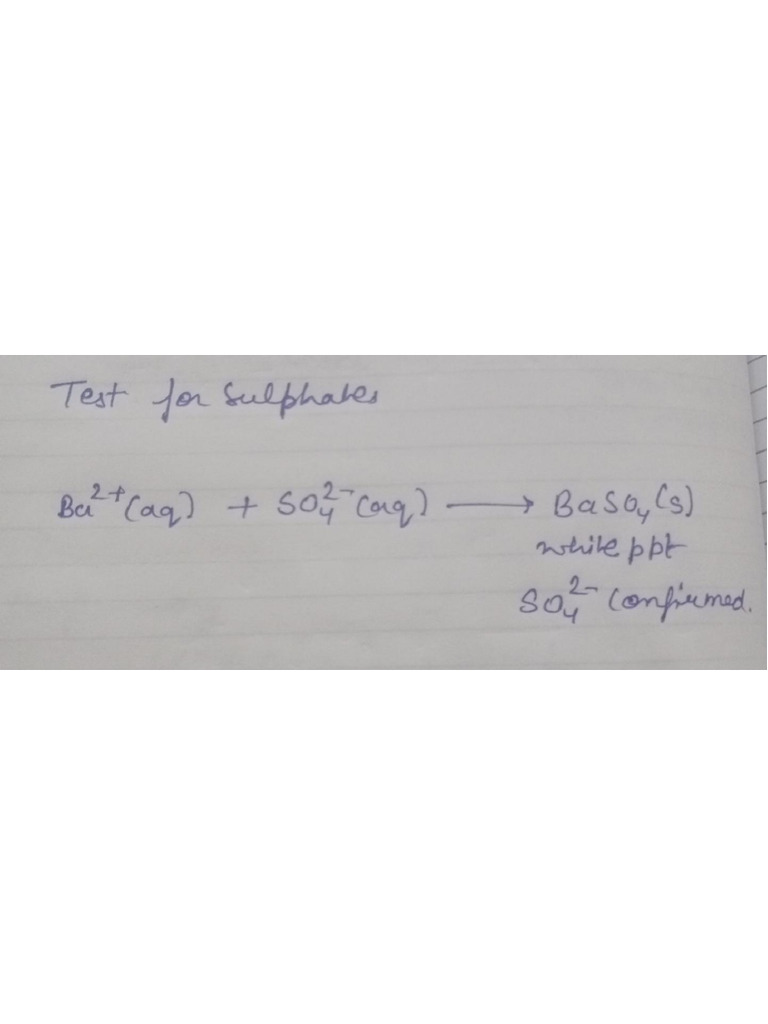 Test for Sulphates
Ba²⁺(aq) + SO₄²⁻(aq) ⟶ BaSO₄(s)
white ppt
SO₄²⁻ Confirmed.